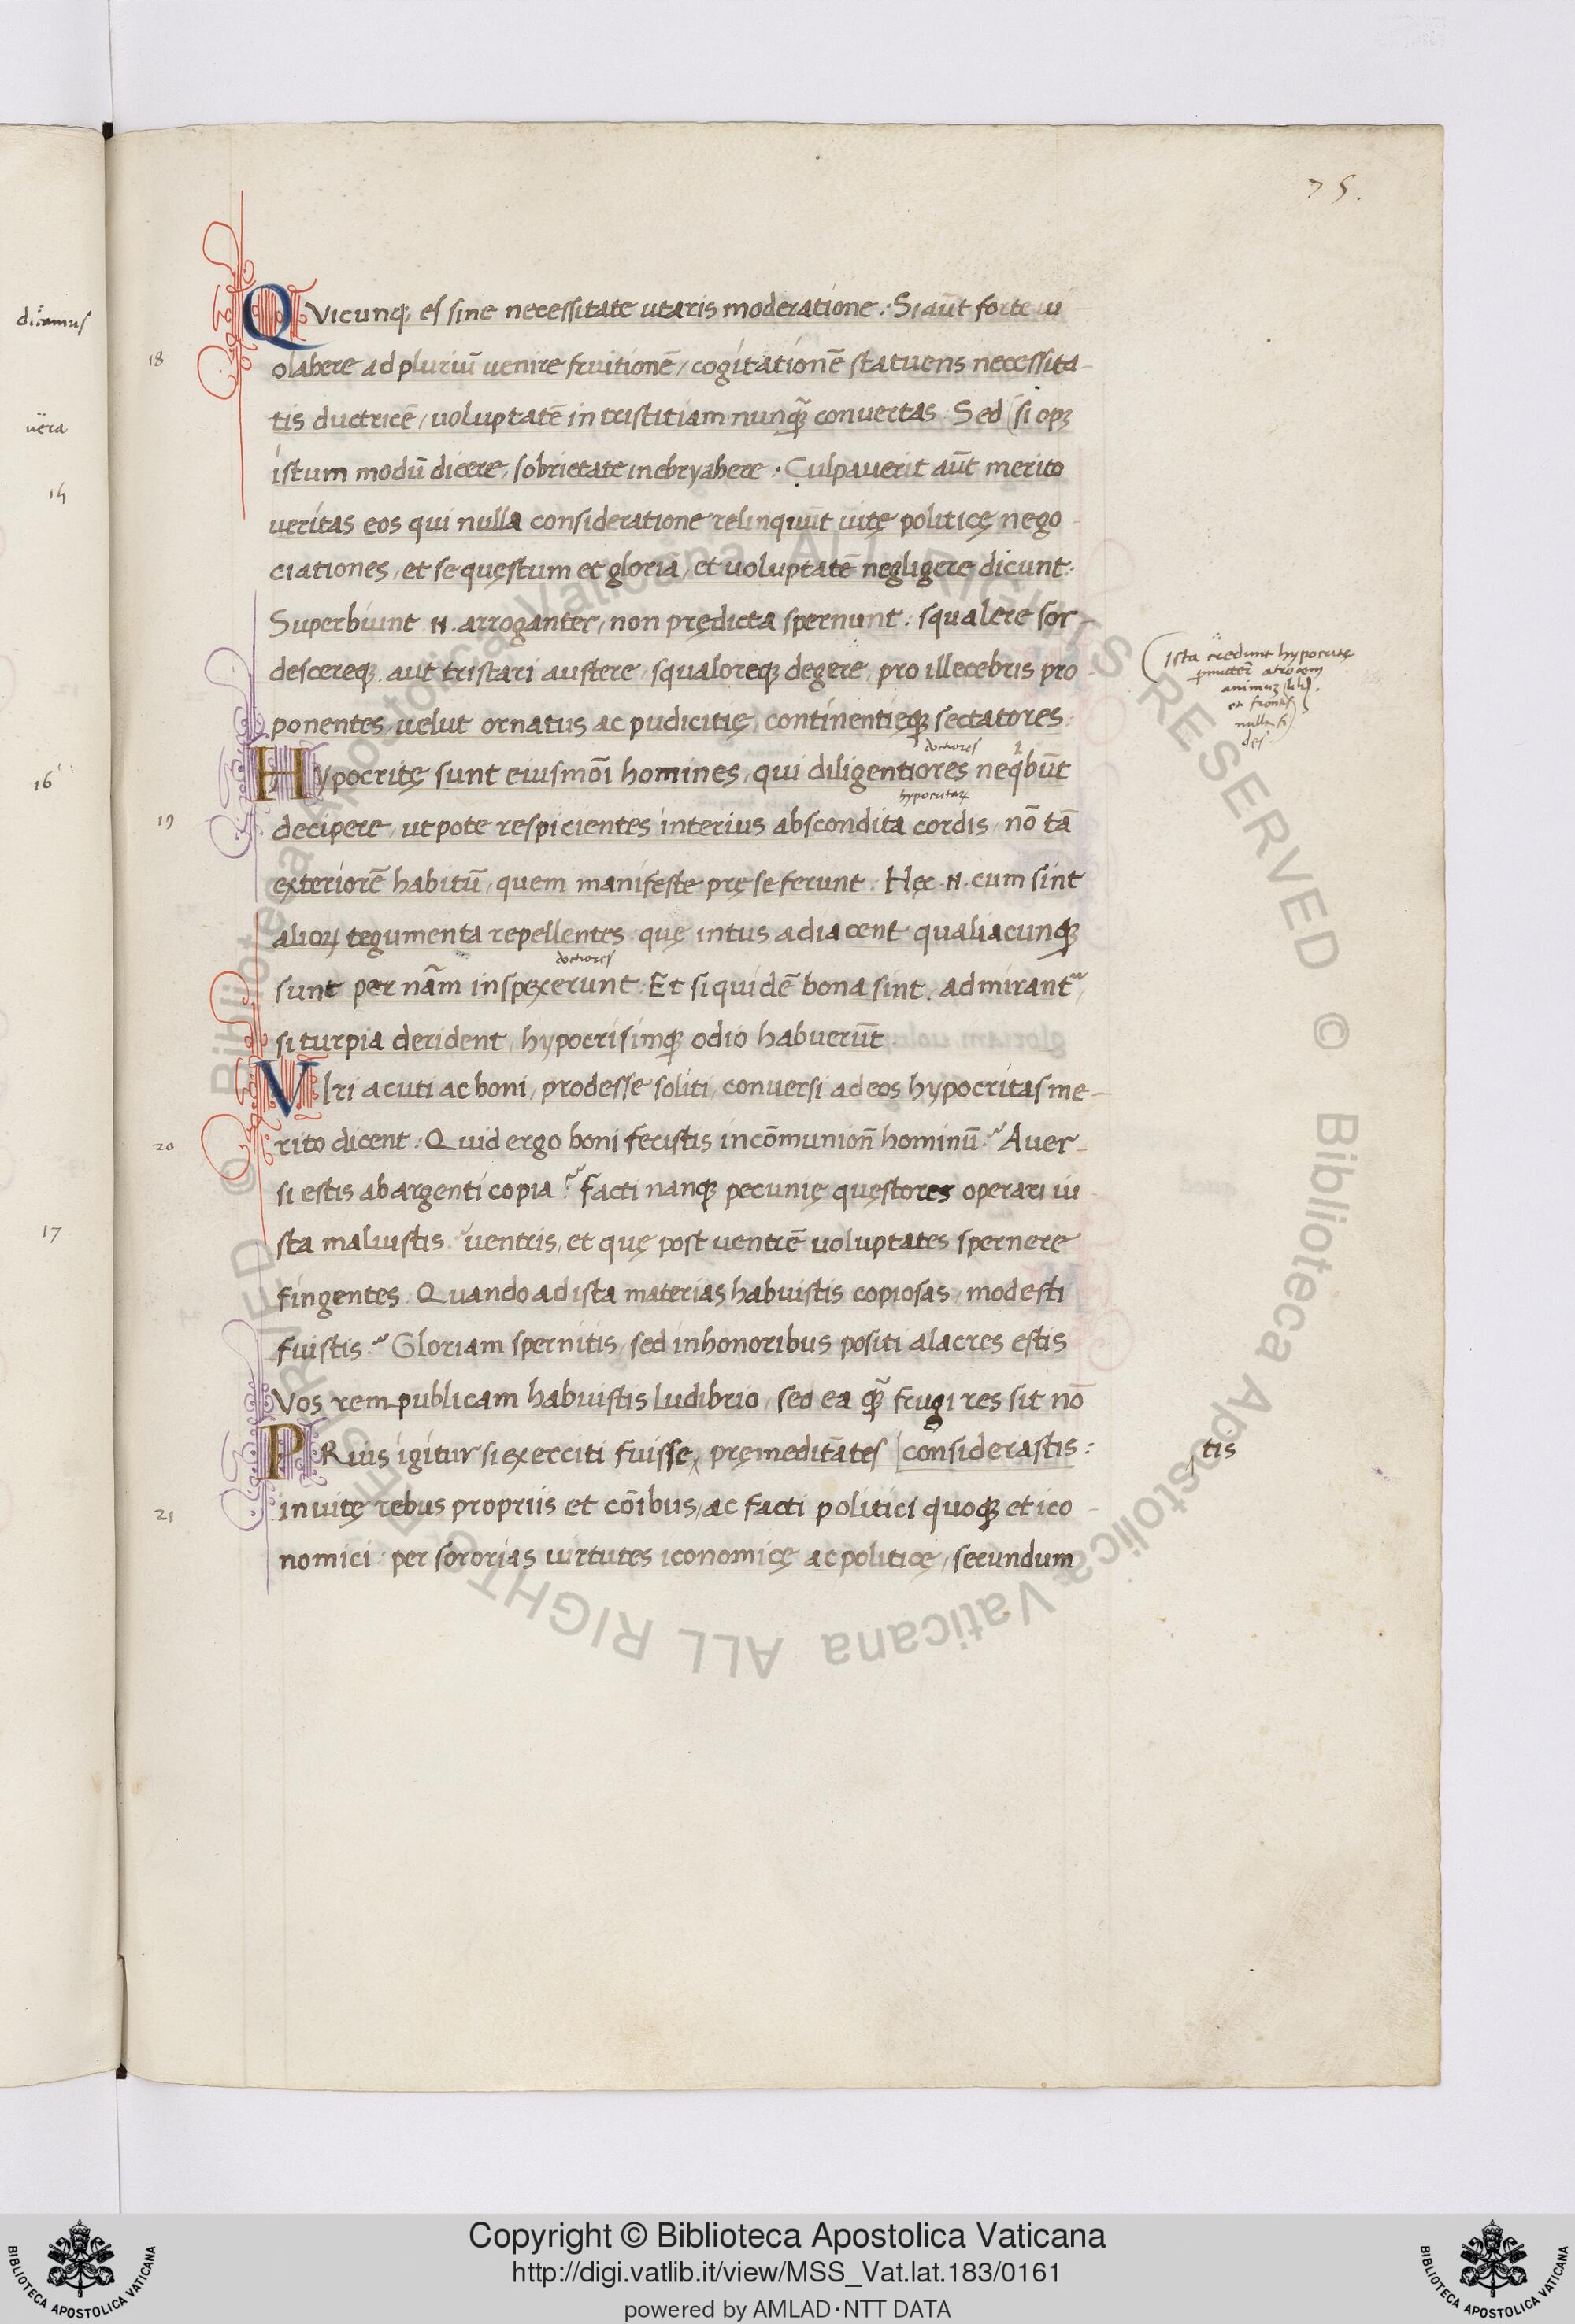 75.
QVicunq; es sine necessitate utaris moderatione: Si aūt forte ui
olabere ad pluriū uenire fruitionē, cogitationē statuens necessita-
tis ductricē, uoluptatē in tristitiam nunq̃ conuertas. Sed si opꝫ
istum modū dicere, sobrietate inebryabere. Culpauerit aūt merito
ueritas eos qui nulla consideratione relinquūt uitę politicę nego-
ciationes, et se quęstum et gloriā, et uoluptatē negligere dicunt:
Superbiunt .N. arroganter, non prędicta spernunt: squalere sor-
descereq; aut tristari austere, squaloreq; degere, pro illecebris pro
ponentes, uelut ornatus ac pudicitię continentięq; sectatores.
doctores
Hypocritę sunt eiusmōi homines, qui diligentiores neqbūt
hypocritaꝝ
decipere, ut pote respicientes interius abscondita cordis, nō tā
exteriorē habitū, quem manifeste prę se ferunt. Hęc .N. cum sint
alioꝝ tegumenta repellentes quę intus adiacent qualiacunq;
doctores
sunt per nām inspexerunt. Et siquidē bona sint, admirant
si turpia derident, hypocrisimq; odio habuerūt
VIri acuti ac boni, prodesse soliti, conuersi ad eos hypocritas me-
rito dicent: Quid ergo boni fecistis in cōmunioñ hominū? Auer-
si estis ab argenti copia? facti nanq; pecunię quęstores operari iu
sta maluistis? uentris, et quę post uentrē uoluptates spernere
fingentes. Quando ad ista materias habuistis copiosas, modesti
fuistis? Gloriam spernitis, sed in honoribus positi alacres estis
Vos rem publicam habuistis ludibrio, sed ea q̃ frugi res sit nō
PRius igitur si exerciti fuisse, pręmeditātes considerastis:
in uitę rebus propriis et cōibus, ac facti politici quoq; et ico-
nomici: per sororias uirtutes iconomicę ac politicę, secundum
18
19
20
21
Ista credunt hyporitę
atrocem
et frontis
nulla fi
des.
tis
dicamus
uera
16
17
© Biblioteca Apostolica Vaticana ALL RIGHTS RESERVED © Biblioteca Apostolica Vaticana ALL RIGHTS RESERVED
Copyright © Biblioteca Apostolica Vaticana
http://digi.vatlib.it/view/MSS_Vat.lat.183/0161
powered by AMLAD·NTT DATA
BIBLIOTECA APOSTOLICA VATICANA
BIBLIOTECA APOSTOLICA VATICANA